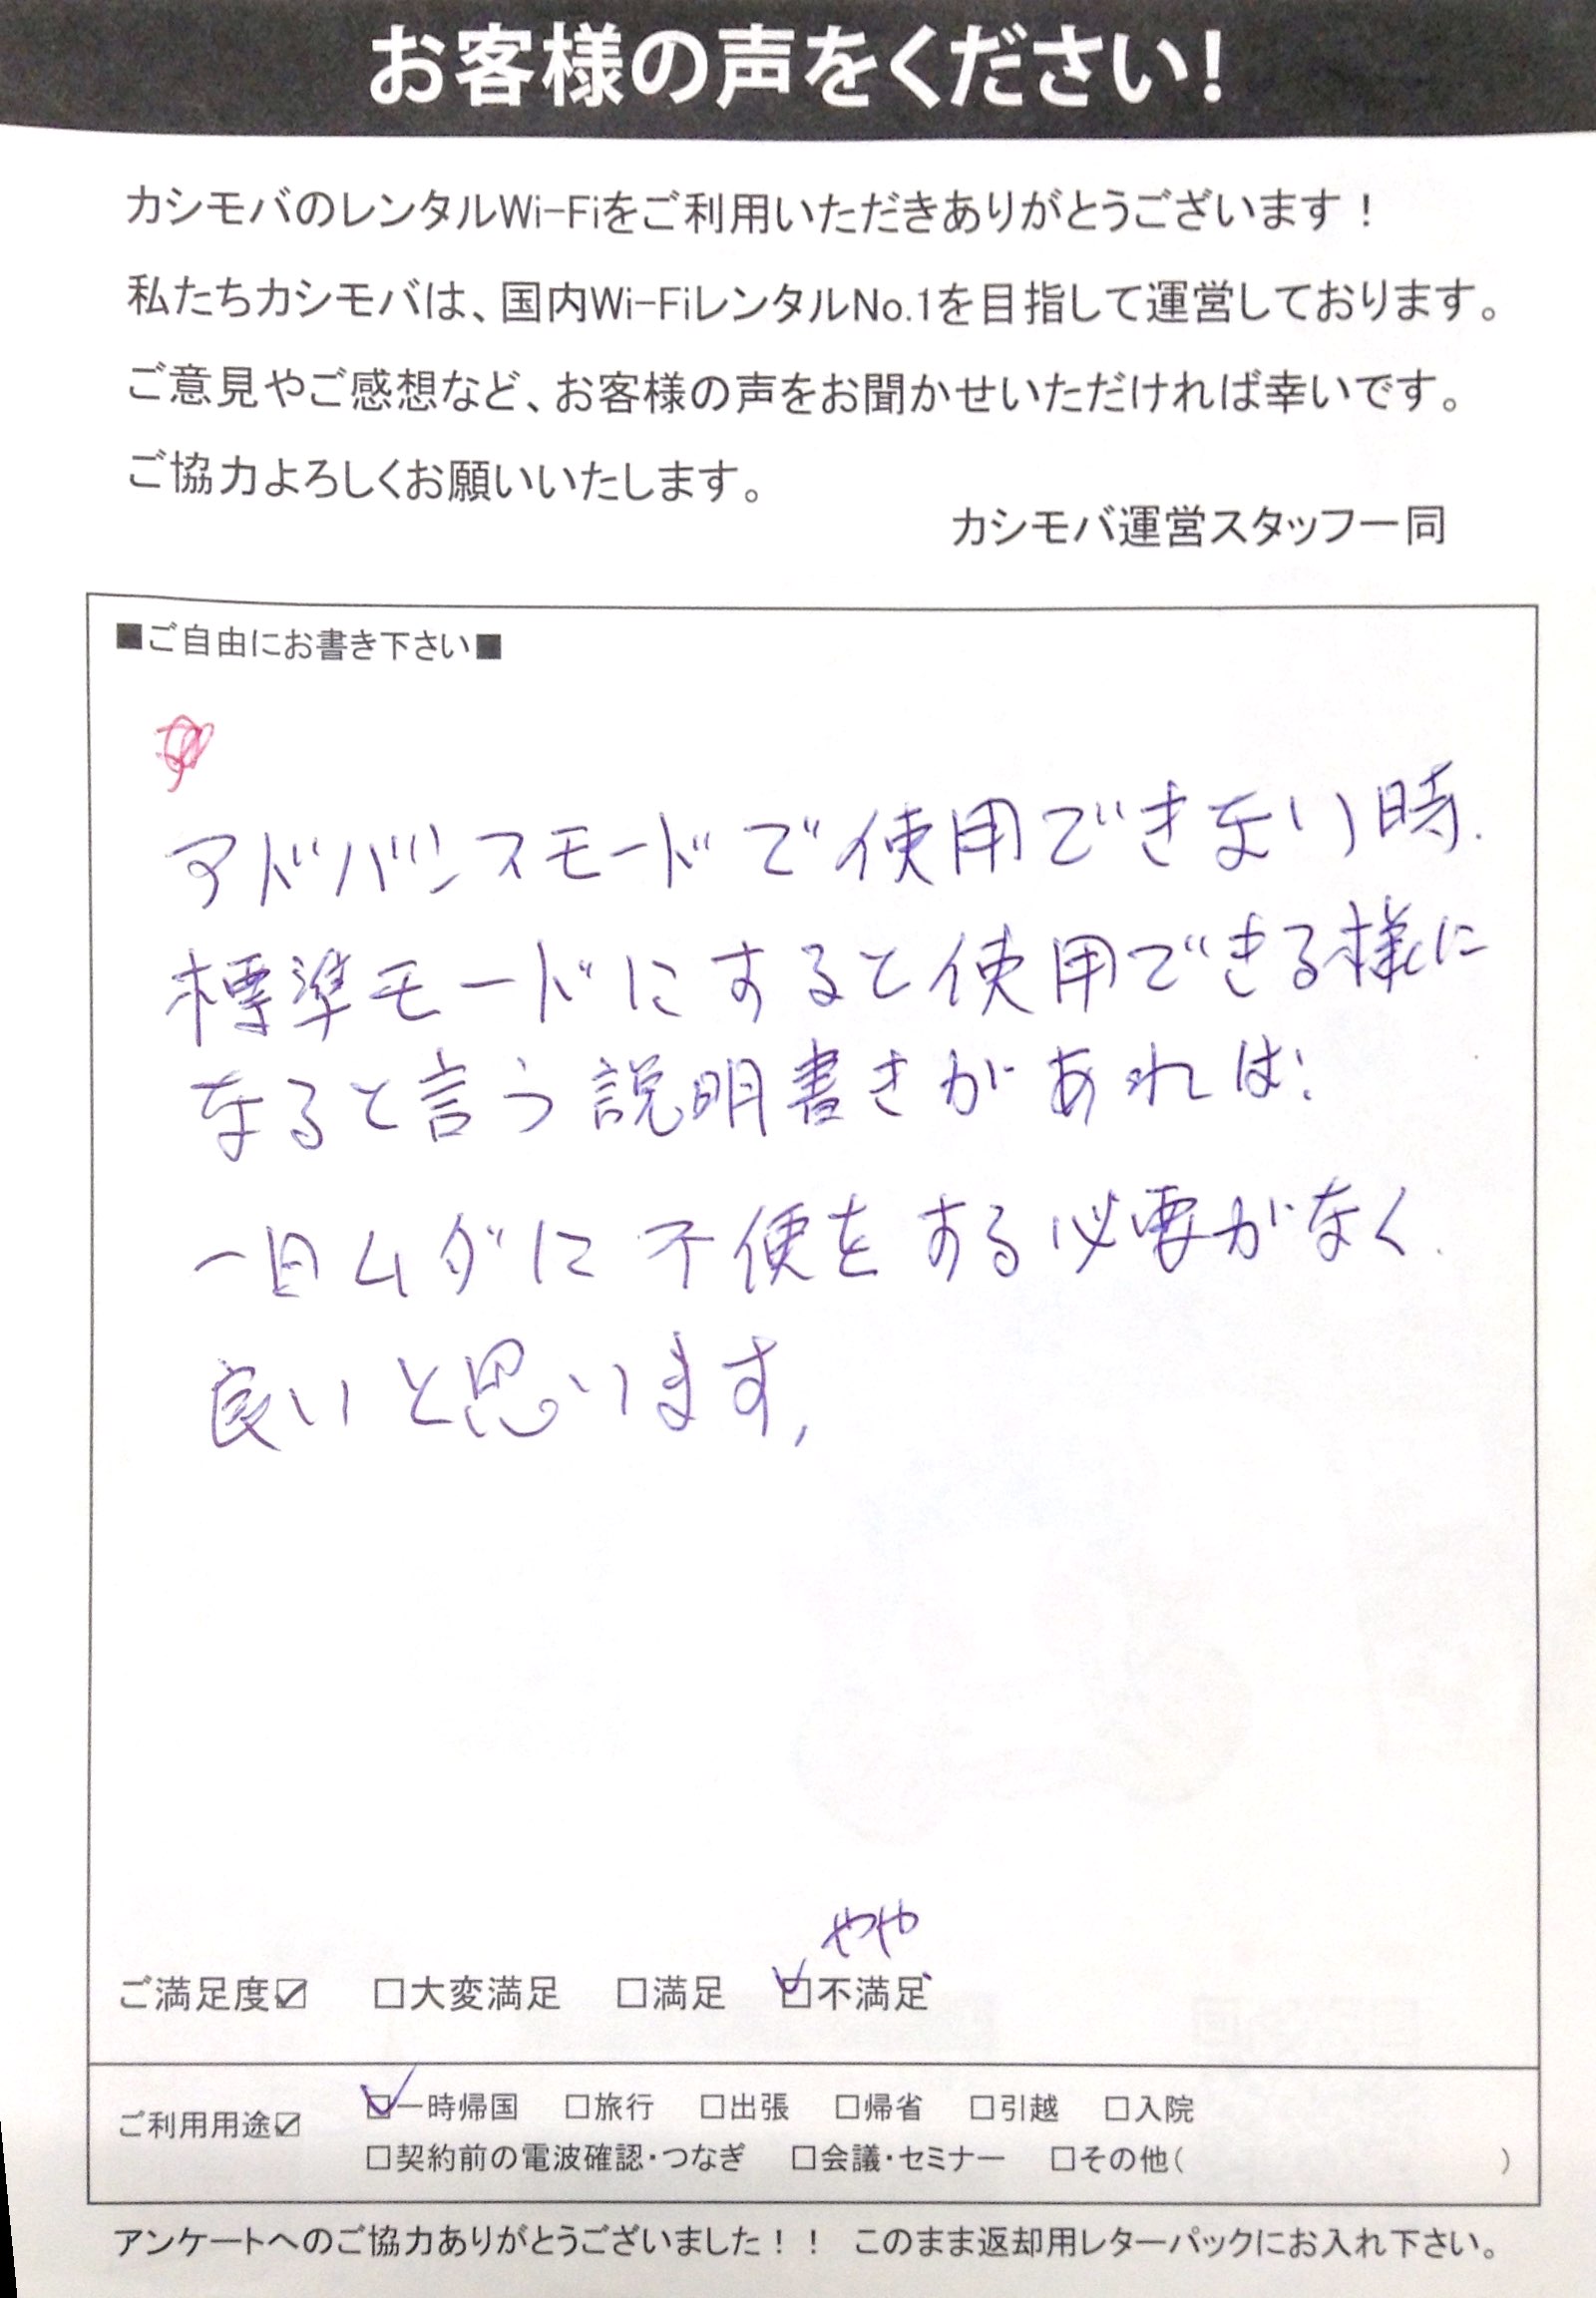 お客様の声をください!
カシモバのレンタルWi-Fiをご利用いただきありがとうございます！
私たちカシモバは、国内Wi-FiレンタルNo.1を目指して運営しております。
ご意見やご感想など、お客様の声をお聞かせいただければ幸いです。
ご協力よろしくお願いいたします。
カシモバ運営スタッフ一同
■ご自由にお書き下さい■
アドバンスモードで使用できない時.
標準モードにすると使用できる様に
なると言う説明書きがあれば
一日ムダに不便をする必要がなく.
良いと思います,
やや
ご満足度☑ □大変満足 □満足 ☑不満足
ご利用用途☑ ☑一時帰国 □旅行 □出張 □帰省 □引越 □入院
□契約前の電波確認・つなぎ □会議・セミナー □その他( )
アンケートへのご協力ありがとうございました！！ このまま返却用レターパックにお入れ下さい。